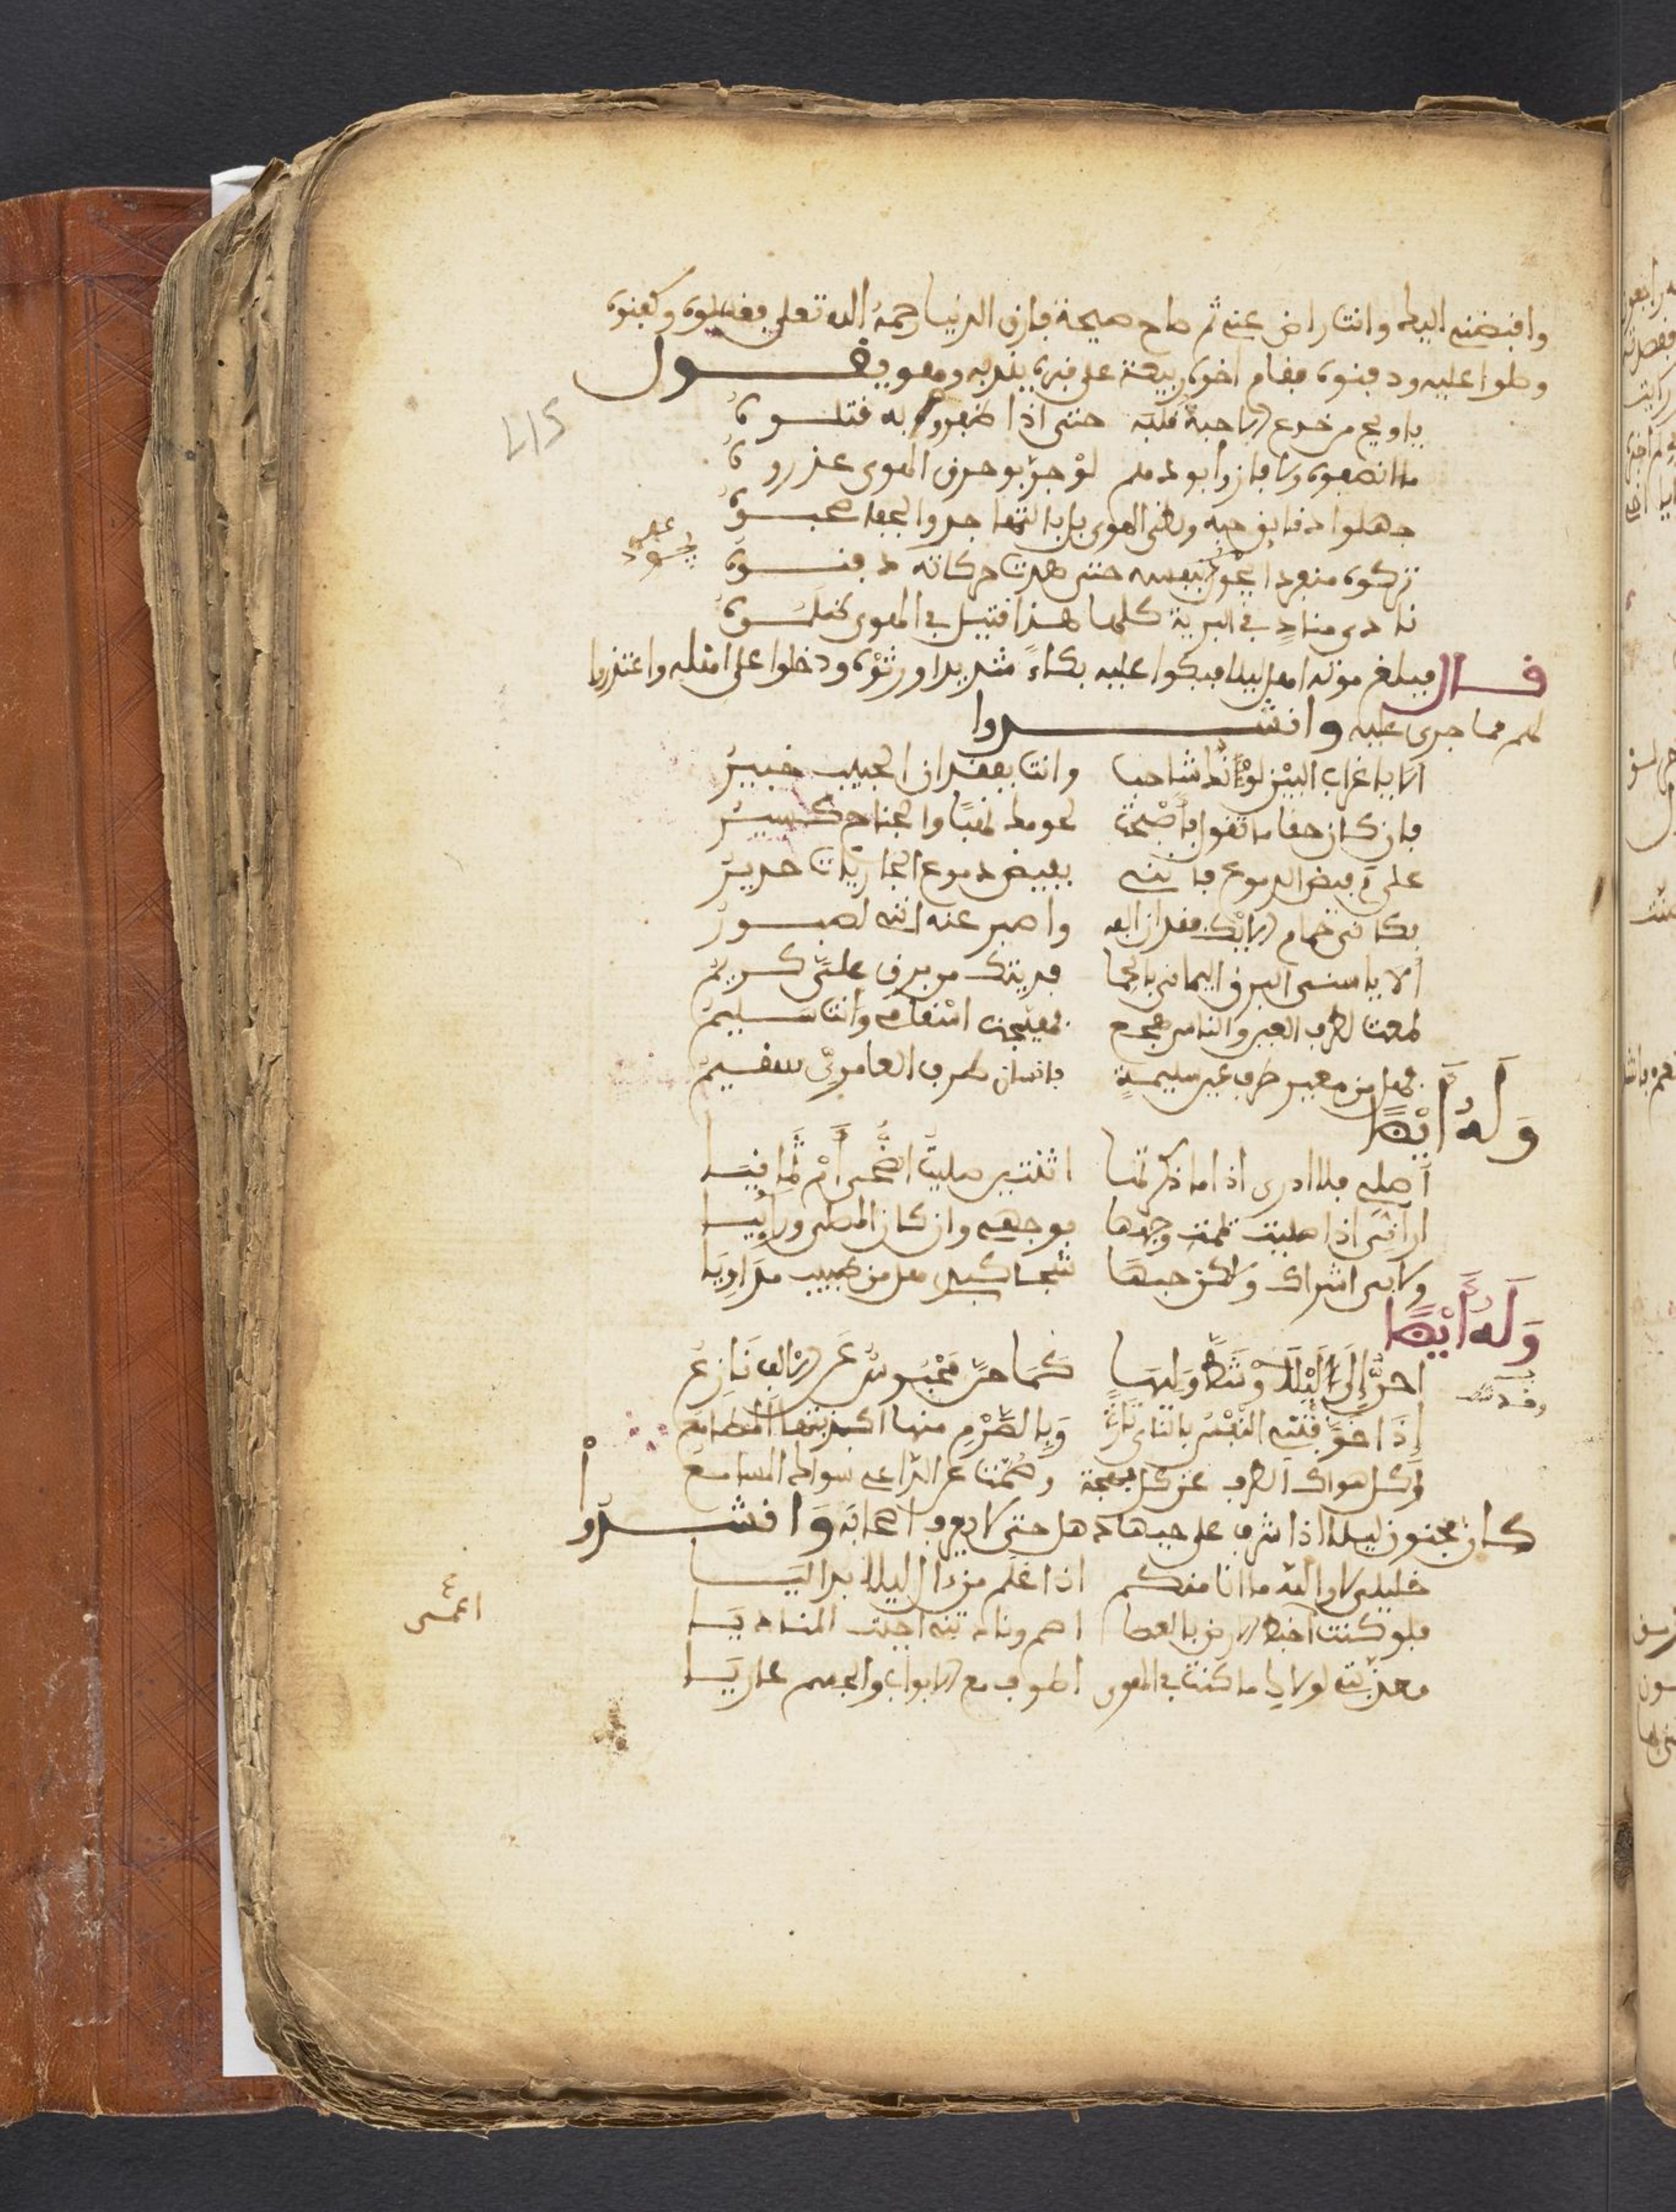 واقبضني اليك وانت راض عني ثم صاح صيحة فارق الدنيا رحمه الله تعلى فغسلوه وكفنوه
وصلوا عليه ودفنوه فقام اخوه ربيعة على قبره يندبه وهو يقول
يا ويح من خدع الاحبة قلبه حتى اذا ظفروا به قتلوه
ما انصفوه ولا فازوا بودهم لو جربو حرق الهوى عذروه
جهلوا دقايق حبه ولظى الهوى بل بالتجا جدوا الجفا صحبوه
تركوه منفردا يجود بنفسه حتى هدت حركاته دفنوه
نادى مناد في البرية كلها هذا قتيل في الهوى
قال فبلغ موته اهل ليلا فبكوا عليه بكاء شديدا ورثوه ودخلوا على اهله واعتذروا
لهم مما جرى عليه وانشدوا
الا يا غراب البين لونك شاحب وانت بفقدان الحبيب خبير
فان كان حقا ما تقول فاصبحت همومك شتى والجناح كسير
على فيض الدموع فانني بفيض دموع الجاريات جدير
بكا حمام الايك فقدان الفه واصبر عنه انني لصبور
الا يا سنى البرق اليماني بالحما فديتك من برق علي كريم
لمعت لطرف العين والناس هجع فهيجت اسقامي وانت سليم
فهل من معير طرف عين سليمة فانسان طرف العامري سقيم
وله ايضا
اصلي فلا ادرى اذا ما ذكرتها اثنتين صليت الضحى ام ثمانيا
اراني اذا صليت يممت وجهها بوجهي وان كان المصلى ورائيا
وما بي اشراك ولكن حبها شجا كبدي هل من طبيب مداويا
وله ايضا
احن الى ليلى وشط وليها كما حن محبوس عن الالف نازع
اذا خوفتني النفس بالناي تارة وبالصرم منها اكذبتها المطامع
وكل هواك الطرف عن كل بهجة وصمت عن الداعي سواك المسامع
كان مجنون ليلا اذا اشرف على حيها ذهل حتى لا يعرف اصحابه وانشدوا
خليلي لا والله ما انا منكم اذا علم من دار ليلا بدا ليا
فلو كنت اخبط الارض بالعصا اصم ونادتني اجبت المناديا
معذبتي لولاك ما كنت في الهوى اطوف مع الابواب والجسم عاريا
اعمى